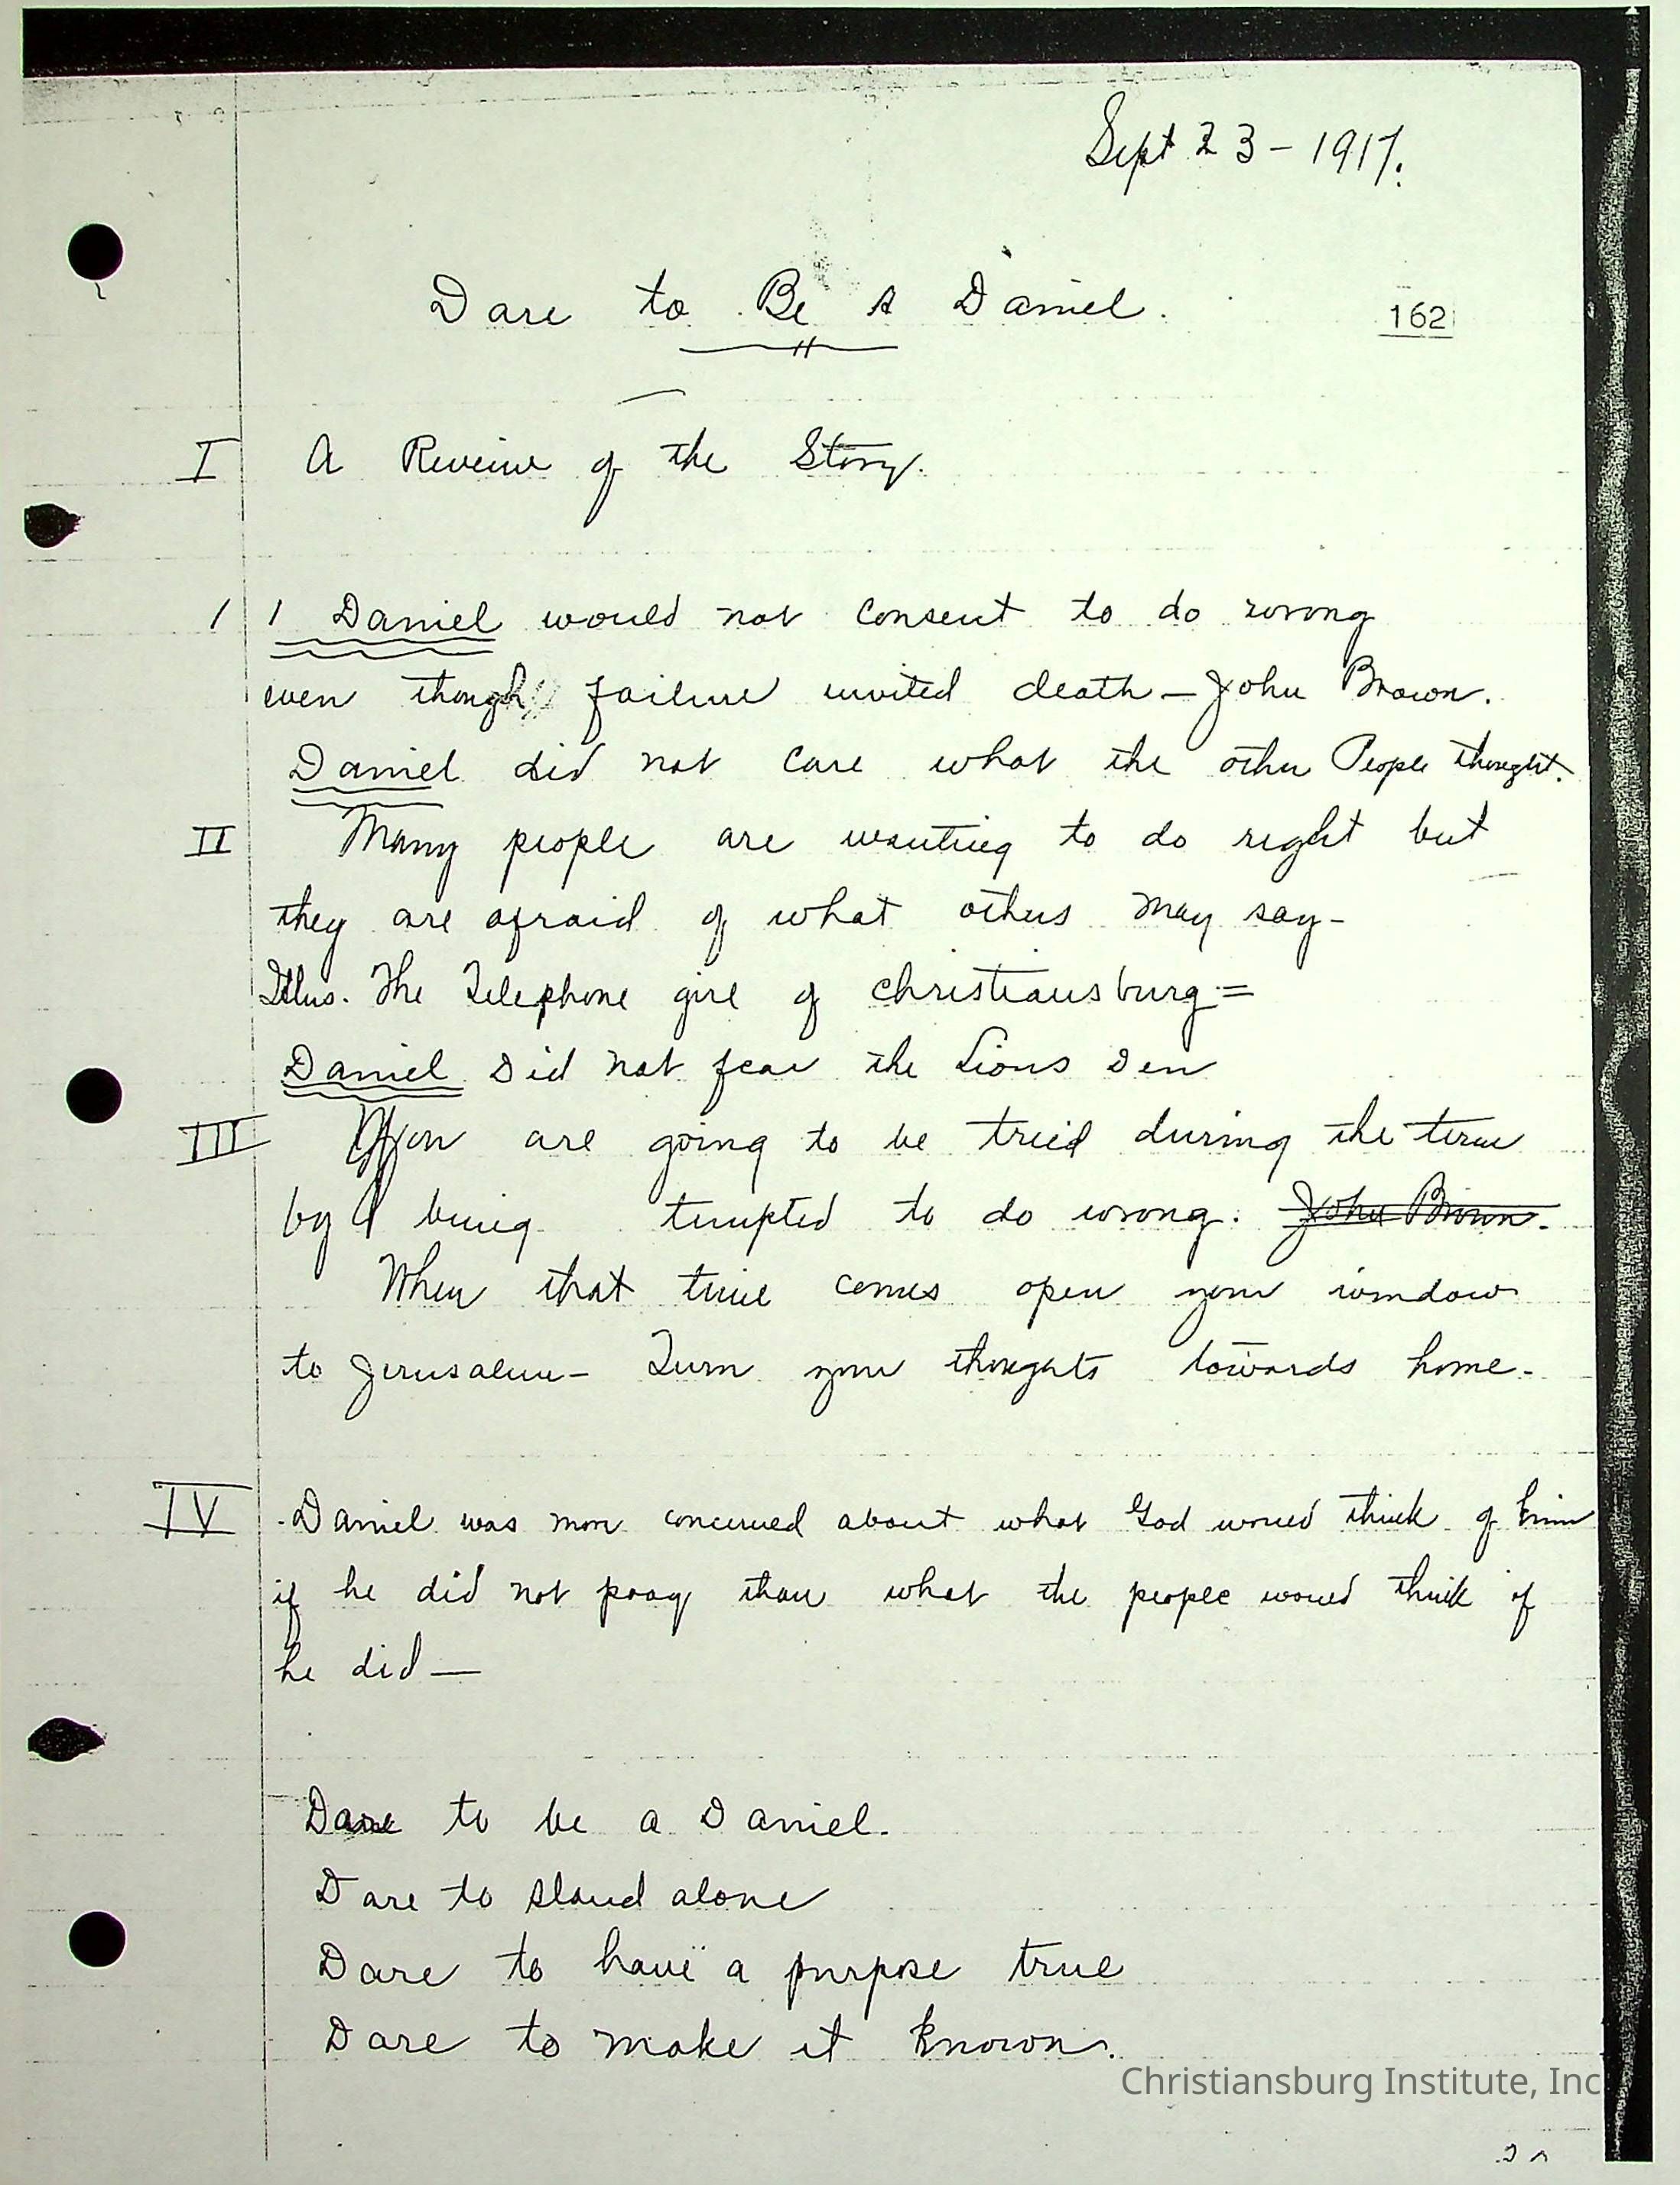 Sept 23 - 1917.
Dare to Be A Daniel.
162
I A Review of the Story.
1 1 Daniel would not consent to do wrong
even though failure invited death - John Brown.
Daniel did not care what the other People thought.
II Many people are wanting to do right but
they are afraid of what others may say -
Illus. The Telephone girl of christiansburg =
Daniel Did not fear the Lions Den
III You are going to be tried during the term
by being tempted to do wrong. John Brown.
When that time comes open your window
to Jerusalem - Turn your thoughts towards home -
IV Daniel was more concerned about what God would think of him
if he did not pray than what the people would think if
he did —
Dare to be a Daniel.
Dare to stand alone
Dare to have a purpose true
Dare to make it known.
Christiansburg Institute, Inc